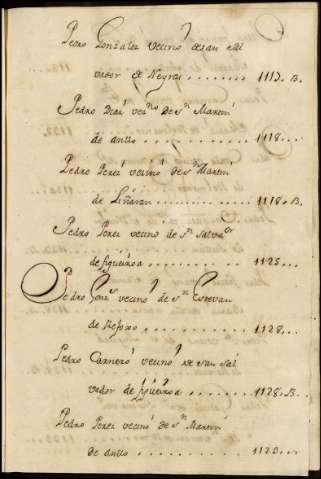 Pedro Gonzalez vecino de san Sal
vador de Negros ........ 1117.B.
Pedro Diaz vec.no de S.n Martin
de anllo ........ 1118...
Pedro Perez vecino de S.n Martin
de Liñaran ........ 1118.B.
Pedro Perez vecino de S.n Salva.or
de figueiroa ........ 1125...
Pedro Gonz.s vecino de S.n Estevan
de ........ 1128...
Pedro Carnero vecino de san Sal
vador de figueiroa .... 1128.B..
Pedro Perez vecino de S.n Martin
de anllo ........ 1129...